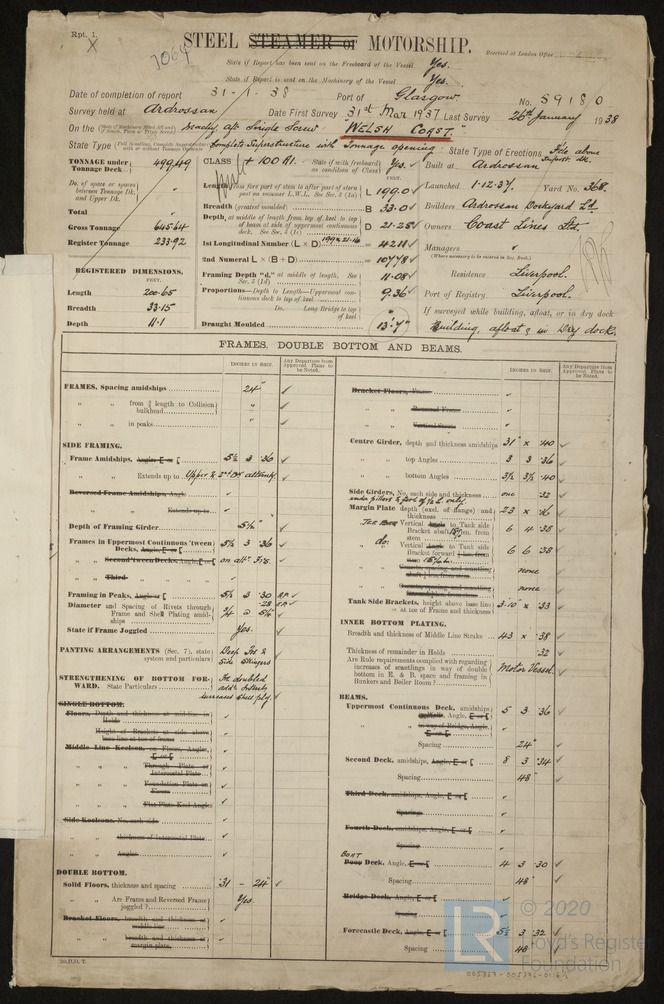 Rpt. 1.
1064
STEEL STEAMER OR MOTORSHIP.
Received at London Office
State if Report has been sent on the Freeboard of the Vessel Yes.
State if Report is sent on the Machinery of the Vessel Yes.
Date of completion of report 31-1-38 Port of Glasgow No. 59180
Survey held at Ardrossan Date First Survey 31st Mar 1937 Last Survey 26th January 1938
On the Machy aft Single Screw "WELSH COAST."
State Type Complete Superstructure with Tonnage opening State Type of Erections Fcle above
TONNAGE under Tonnage Deck 499.49
Do. of space or spaces between Tonnage Dk. and Upper Dk. "
Total "
Gross Tonnage 645.64
Register Tonnage 233.92
REGISTERED DIMENSIONS.
FEET.
Length 200.65
Breadth 33.15
Depth 11.1
CLASS + 100 A1. State if with freeboard as condition of Class Yes.
L 199.0
Breadth (greatest moulded) B 33.0
Depth, at middle of length from top of keel to top of beam at side of uppermost continuous deck. See Sec. 3 (1c) D 21.25
1st Longitudinal Number (L × D) = 4211
2nd Numeral L × (B + D) = 10778
Framing Depth "d," at middle of length. See Sec. 3 (1d) = 11.08
Proportions—Depth to Length—Uppermost continuous deck to top of keel 9.36
Do. Long Bridge to top of keel
Draught Moulded 13'-7"
Built at Ardrossan
Launched 1.12.37. Yard No. 368.
Builders Ardrossan Dockyard Ld.
Owners Coast Lines Ltd.
Managers
(Where necessary to be entered in Reg. Book.)
Residence Liverpool.
Port of Registry Liverpool.
If surveyed while building, afloat, or in dry dock
Building, afloat & in Dry dock.
FRAMES, DOUBLE BOTTOM AND BEAMS.
INCHES IN SHIP.
Any Departure from Approved Plans to be Noted.
FRAMES, Spacing amidships 24"
" " from 3/5 length to Collision bulkhead "
" " in peaks "
SIDE FRAMING.
Frame Amidships, Angle, E or [ 5½ 3 .36
" " Extends up to Upper & 2nd Dk alternately
Reversed Frame Amidships, Angle
" " Extends up to
Depth of Framing Girder 5½"
Frames in Uppermost Continuous 'tween Decks, Angle, E or [ 5½ 3 .36
" " Second 'tween Decks, Angle, E or [ on alt. Frs.
" " Third "
Framing in Peaks, Angle or [ 5½ 3 .30
Diameter and Spacing of Rivets through Frame and Shell Plating amidships ¾ @ 5¼"
State if Frame Joggled Yes.
PANTING ARRANGEMENTS (Sec. 7), state system and particulars Deep Frs & Side Stringers
STRENGTHENING OF BOTTOM FORWARD. State Particulars
SINGLE BOTTOM.
Floors, Depth and thickness at mid-line in Hold
Height of Brackets at side above base line at toe of frame
Middle Line Keelson, on Floors, Angles, E or [
" " Through Plate or Intercostal Plate
" " Foundation Plate on Floors
" " Flat Plate Keel Angles
Side Keelsons, No. each side
" " thickness of Intercostal Plate
" " Angles
DOUBLE BOTTOM.
Solid Floors, thickness and spacing .31 - 24"
" " Are Frames and Reversed Frame joggled? Yes.
Bracket Floors, breadth and thickness at middle line
" " breadth and thickness at margin plate
Bracket Floors, Frame
" " Reversed Frame
" " Vertical Struts
Centre Girder, depth and thickness amidships 31" × .40
" " top Angles 3 3 .36
" " bottom Angles 3½ 3½ .40
Side Girders, No. each side and thickness one .32
Margin Plate depth (excl. of flange) and thickness 23 ×
6 4 .38
6 6 .38
none
none
Tank Side Brackets, height above base line at toe of Frame and thickness 3'-10" × .33
INNER BOTTOM PLATING.
Breadth and thickness of Middle Line Strake 43 × .38
Thickness of remainder in Holds .32
Are Rule requirements complied with regarding increase of scantlings in way of double bottom in E. & B. space and framing in Bunkers and Boiler Room? Motor Vessel.
BEAMS.
Uppermost Continuous Deck, amidships 5 3 .36
" " in way of Bridge, Angle, E or [
Spacing 24"
Second Deck, amidships, Angle, E or [ 8 3 .34
Spacing 48"
Third Deck, amidships, Angle, E or [
Spacing
Fourth Deck, amidships, Angle, E or [
Spacing
BOAT
Poop Deck, Angle, E or [ 4 3 .30
Spacing 48"
Bridge Deck, Angle, E or [
Spacing
Forecastle Deck, Angle, E or [ 5½ 3 .32
Spacing 48"
LR
© 2020
Lloyd's Register
Foundation